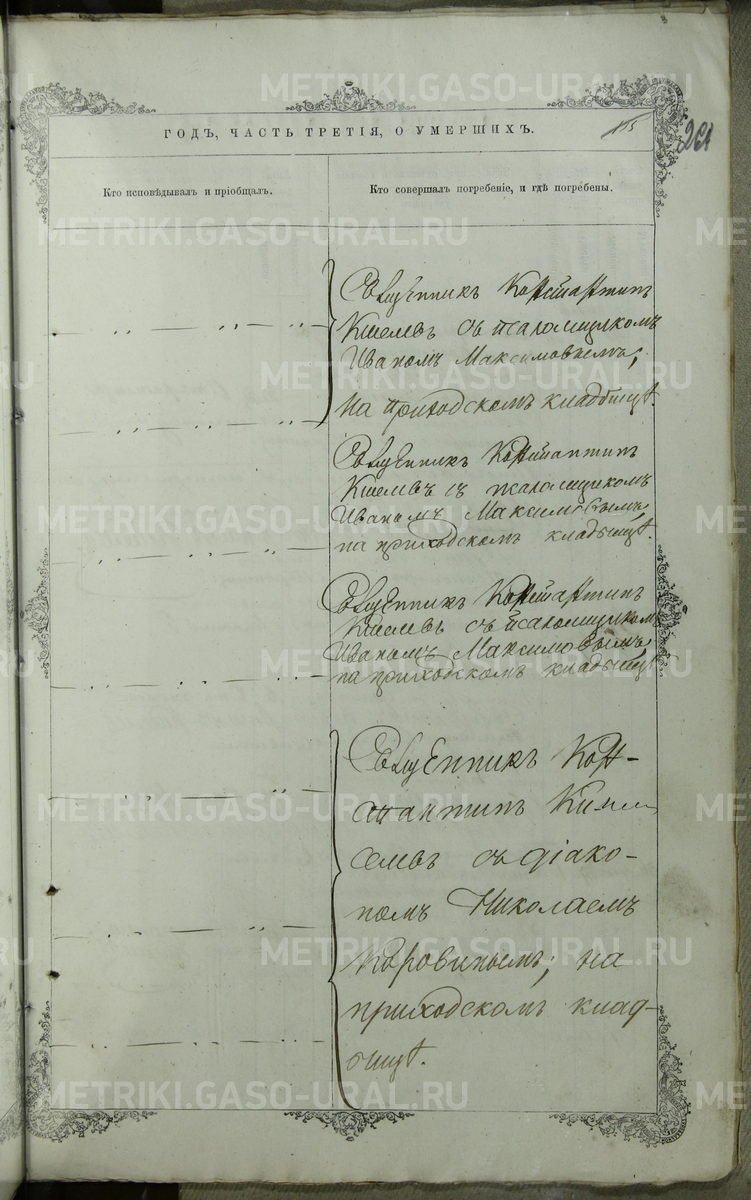 ГОДЪ, ЧАСТЬ ТРЕТІЯ, О УМЕРШИХЪ.
115
261
Кто исповѣдывалъ и пріобщалъ.
Кто совершалъ погребеніе, и гдѣ погребены.
Священникъ Константинъ
съ псаломщикомъ
Иваномъ Максимовымъ;
на приходскомъ кладбищѣ.
Священникъ Константинъ
съ псаломщикомъ
Иваномъ Максимовымъ,
на приходскомъ кладбищѣ.
Священникъ Константинъ
съ псаломщикомъ
Иваномъ Максимовымъ,
на приходскомъ кладбищѣ
Священникъ Кон-
стантинъ
съ діако-
номъ Николаемъ
Коровинымъ; на
приходскомъ клад-
бищѣ.
METRIKI.GASO-URAL.RU